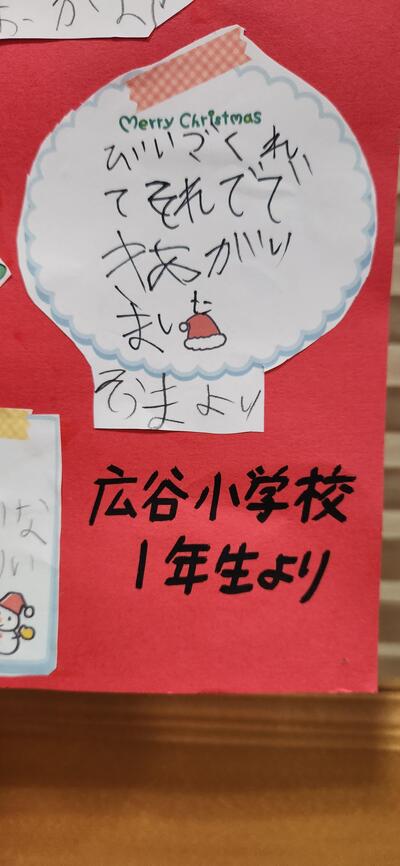 Merry Christmas
びいごくれ
てそれでで
きあがり
ました
そまより
広谷小学校
1年生より